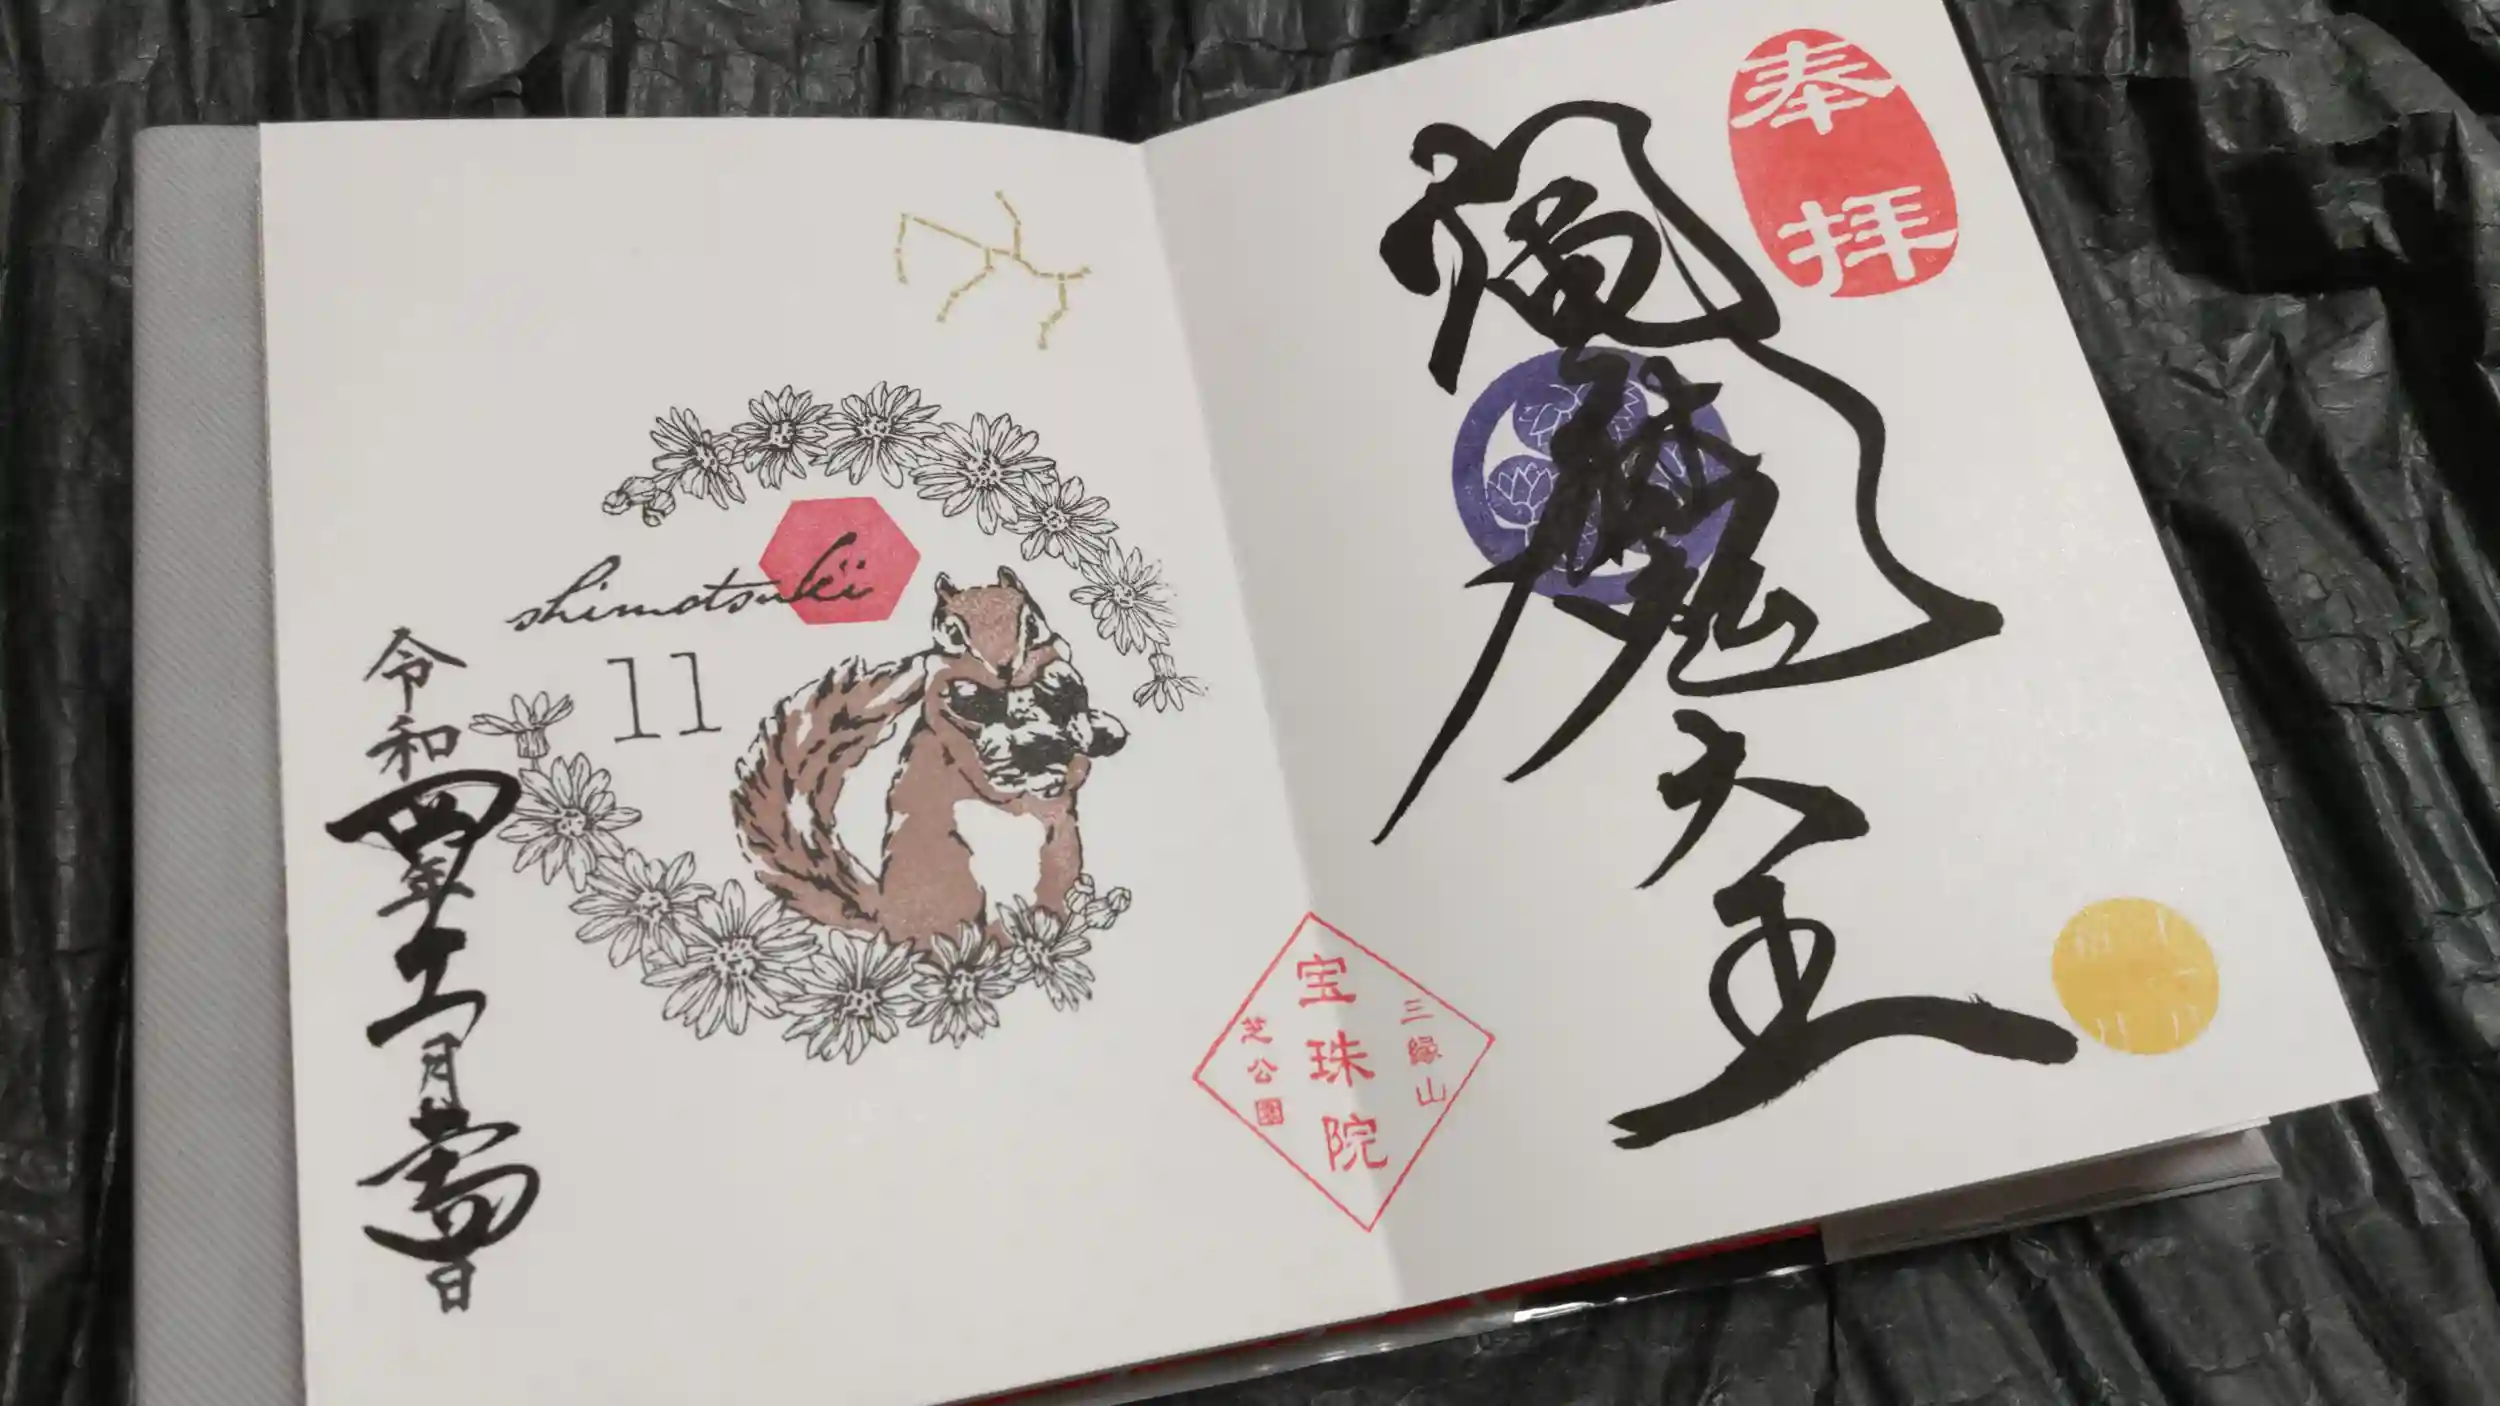 奉拝
閻魔大王
三縁山
宝珠院
芝公園
shimotsuki
11
令和四年十一月吉日